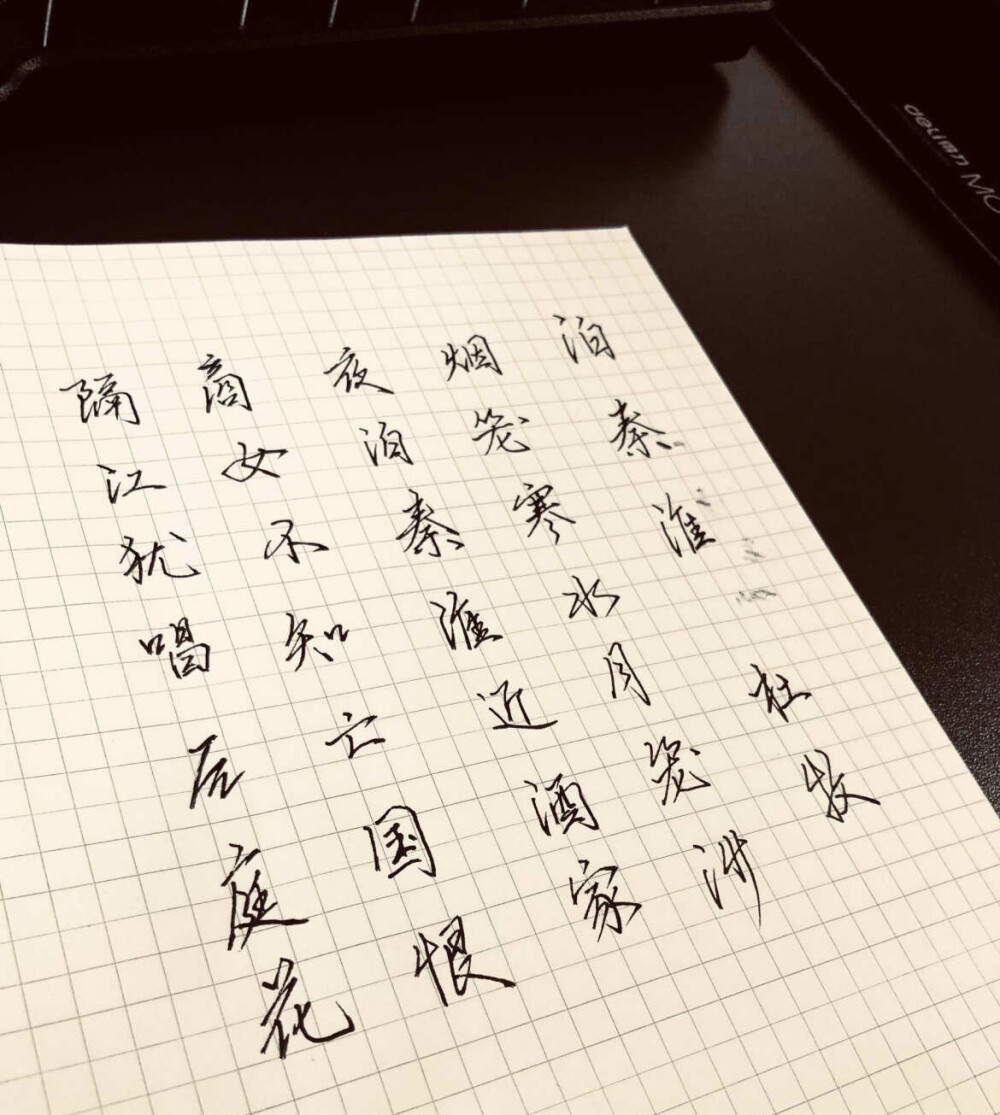 泊秦淮 杜牧
烟笼寒水月笼沙
夜泊秦淮近酒家
商女不知亡国恨
隔江犹唱后庭花
deli得力